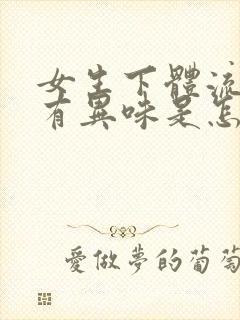 女生下體流
有異味是怎
愛做夢的葡萄